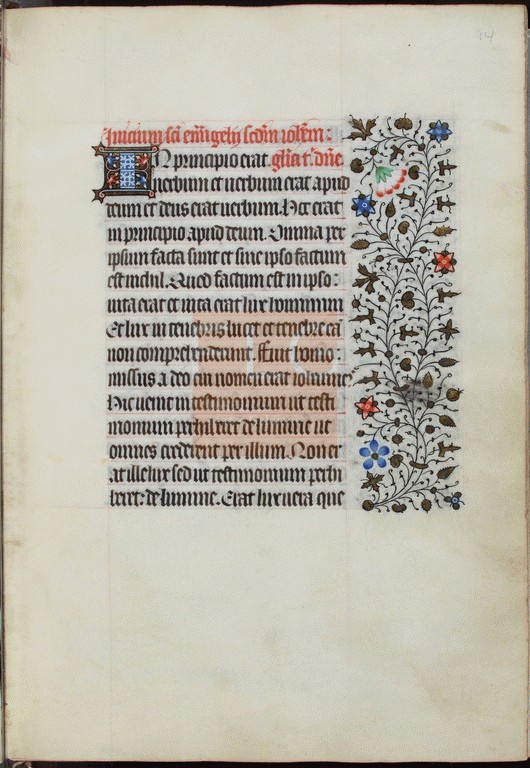 14
Iniciũ sc̃i eũãgelij scd̃m ioh̃em:
IN principio erat. gl̃ia t̃. dñe
uerbum et uerbum erat apud
deum et deus erat uerbum. Hoc erat
in principio apud deum. Omnia per
ipsum facta sunt et sine ipso factum
est nichil. Quod factum est in ipso:
uita erat et uita erat lux hominum
Et lux in tenebris lucet et tenebre eã
non comprehenderunt. Fuit homo:
missus a deo cui nomen erat iohannes
Hic uenit in testimonium ut testi
monium perhiberet de lumine ut
omnes crederent per illum. Non er
at ille lux sed ut testimonium perhi
beret: de lumine. Erat lux uera que